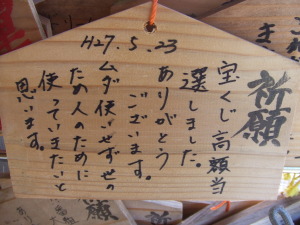 祈願
H27.5.23
宝くじ高額当
選しました。
ありがとう
ございます。
ムダ使いせず世の
ため人のために
使っていきたいと
思います。
願